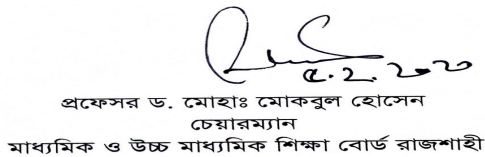 ৫.২.২০২০
প্রফেসর ড. মোহাঃ মোকবুল হোসেন
চেয়ারম্যান
মাধ্যমিক ও উচ্চ মাধ্যমিক শিক্ষা বোর্ড রাজশাহী